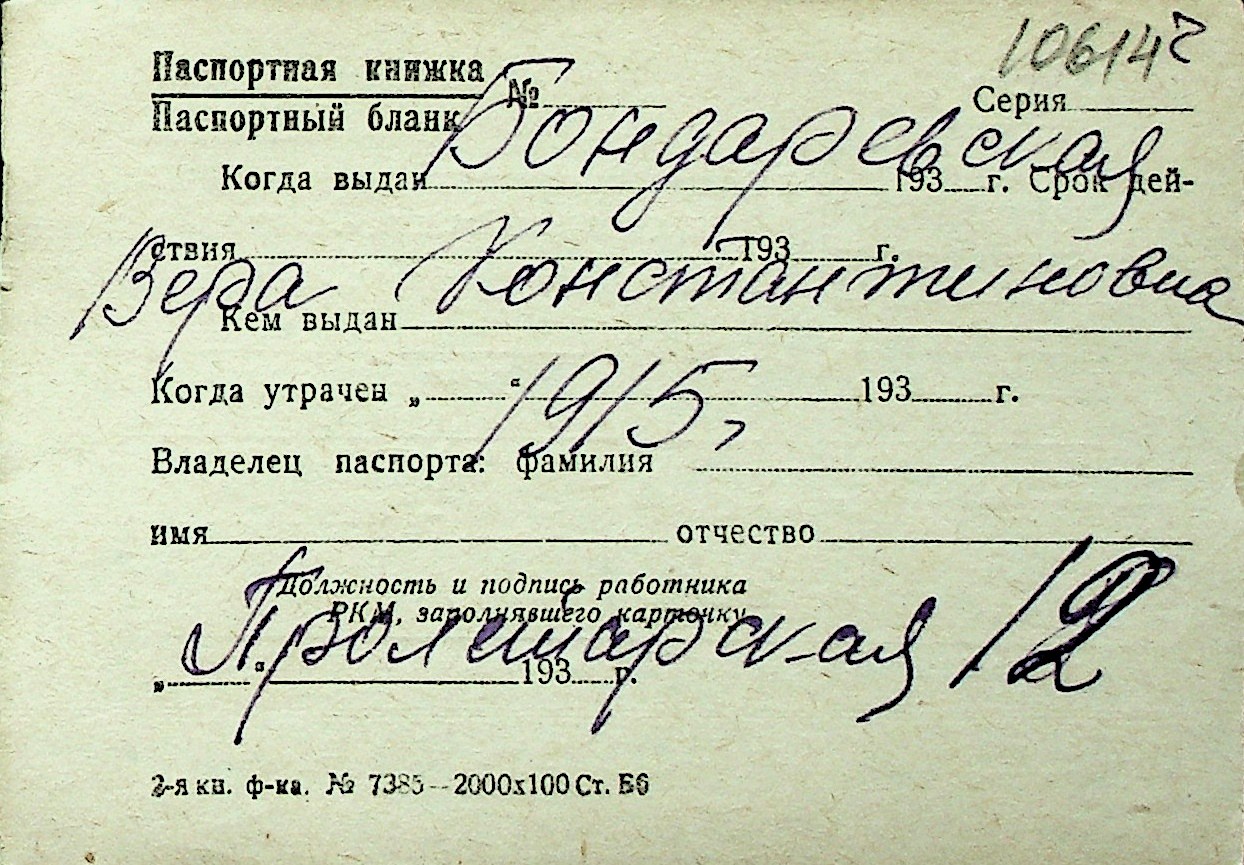 106142
Паспортная книжка
Паспортный бланк № Серия
Бондаревская
Когда выдан 193 г. Срок дей-
ствия 193 г.
Вера Константиновна
Кем выдан
Когда утрачен „ “ 193 г.
1915 г
Владелец паспорта: фамилия
имя отчество
Должность и подпись работника
РКМ, заполнявшего карточку
Пролетарская 12
„ “ 193 г.
2-я кн. ф-ка. № 7385—2000х100 Ст. Б6